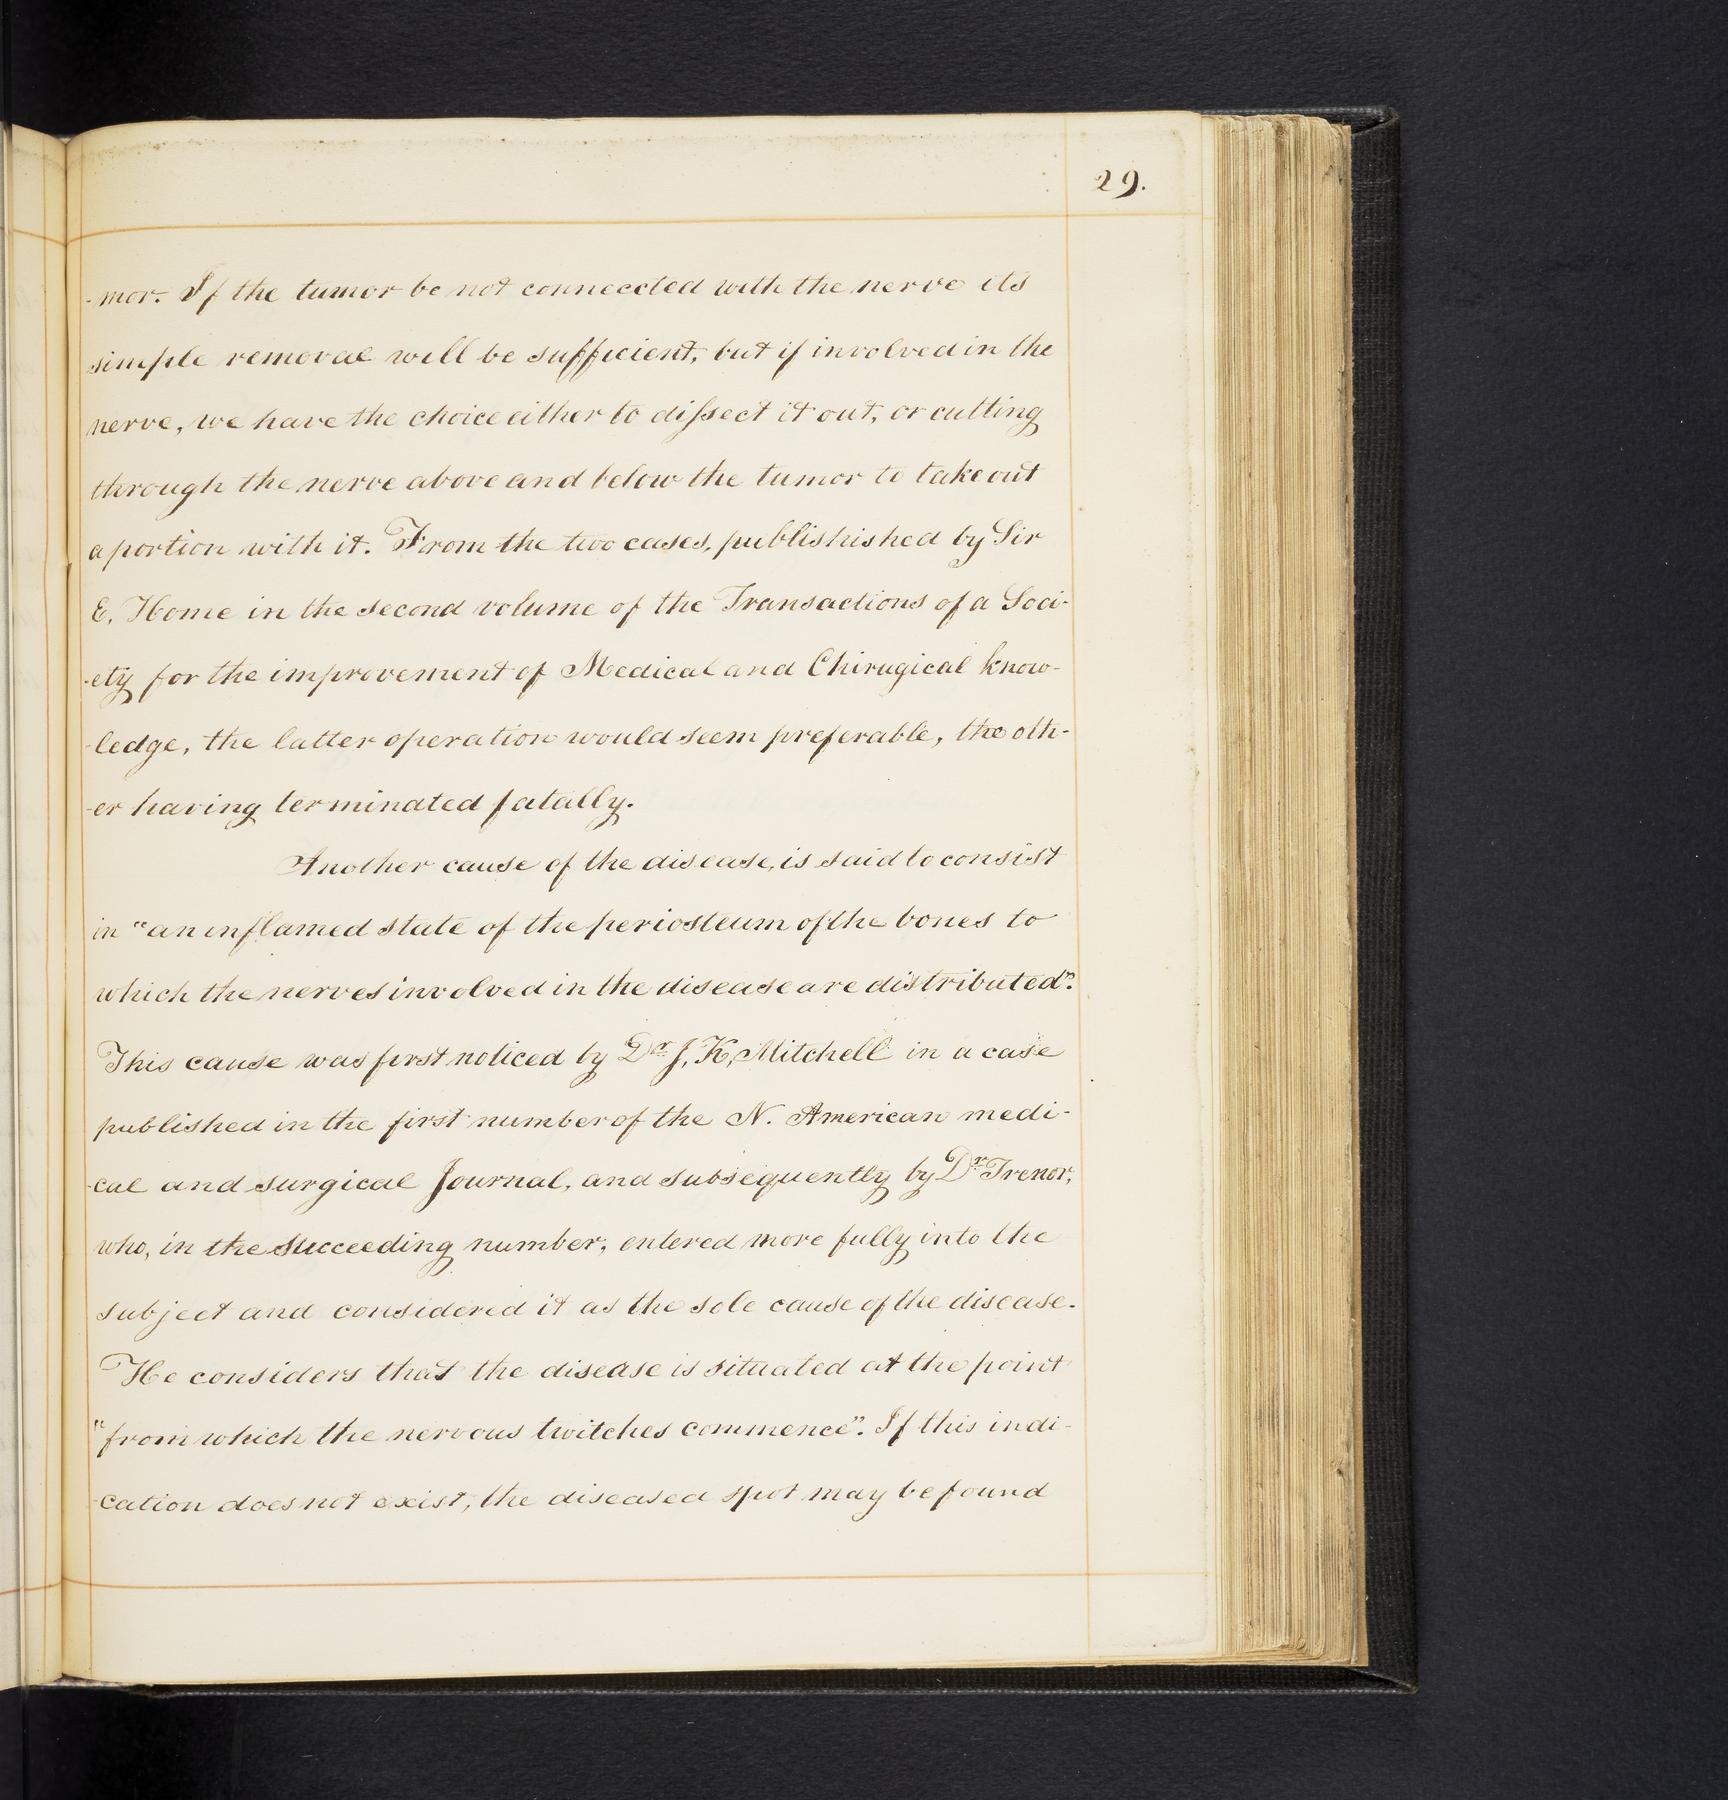 29.
-mor. If the tumor be not connecated with the nerve its
simple removal will be sufficient, but if involved in the
nerve, we have the choice either to dissect it out, or cutting
through the nerve above and below the tumor to take out
a portion with it. From the two cases, publishished by Sir
E. Home in the second volume of the Transactions of a Soci-
-ety for the improvement of Medical and Chirugical know-
-ledge, the latter operation would seem preferable, the oth-
-er having terminated fatally.
Another cause of the disease, is said to consist
in "an inflamed state of the periosteum of the bones to
which the nerves involved in the disease are distributed".
This cause was first noticed by Dr. J. K. Mitchell in a case
published in the first number of the N. American medi-
-cal and surgical Journal, and subsequently by Dr. Trenor,
who, in the succeeding number, entered more fully into the
subject and considered it as the sole cause of the disease.
He considers that the disease is situated at the point
"from which the nervous twitches commence". If this indi-
-cation does not exist, the diseased spot may be found